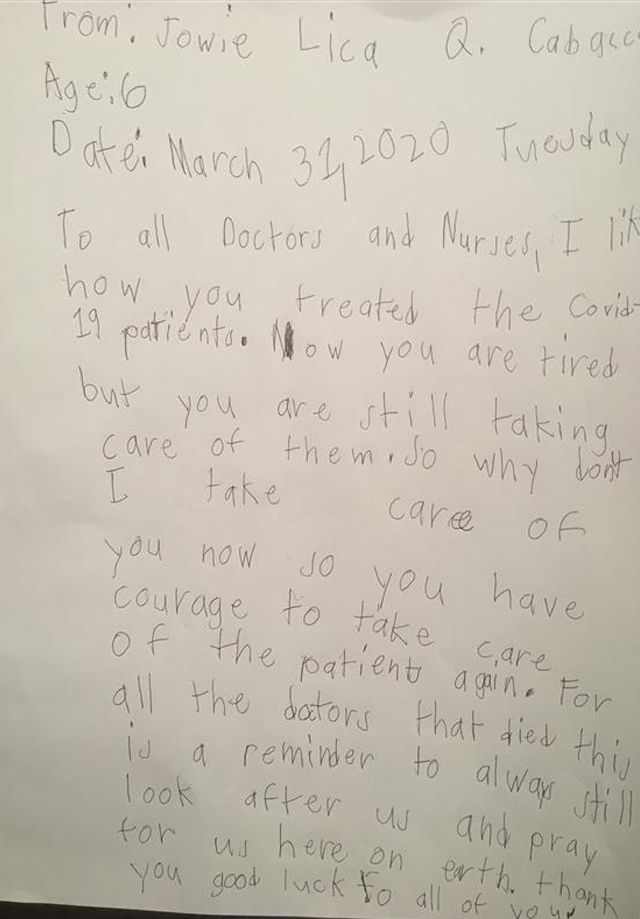 From: Jowie Lica Q. Cabacc
Age: 6
Date: March 31, 2020 Tuesday
To all Doctors and Nurses, I lik
how you treated the Covid-
19 patients. Now you are tired
but you are still taking
care of them. So why don't
I take care of
you now so you have
courage to take care
of the patient again. For
all the doctors that died this
is a reminder to always still
look after us and pray
for us here on earth. thank
you good luck to all of your